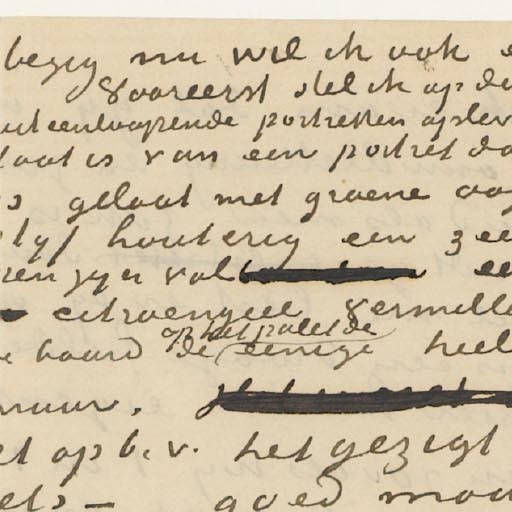 bezig nu wil ik ook e
Vooreerst stel ik op d
uiteenloopende portretten oplev
laat is van een portret da
gelaat met groene oog
houterig een zee
zyn vol
citroengeel vermillo
op het palet de
e baard de eenige heel
muur.
et op b.v. het gezigt
ets – goed mod